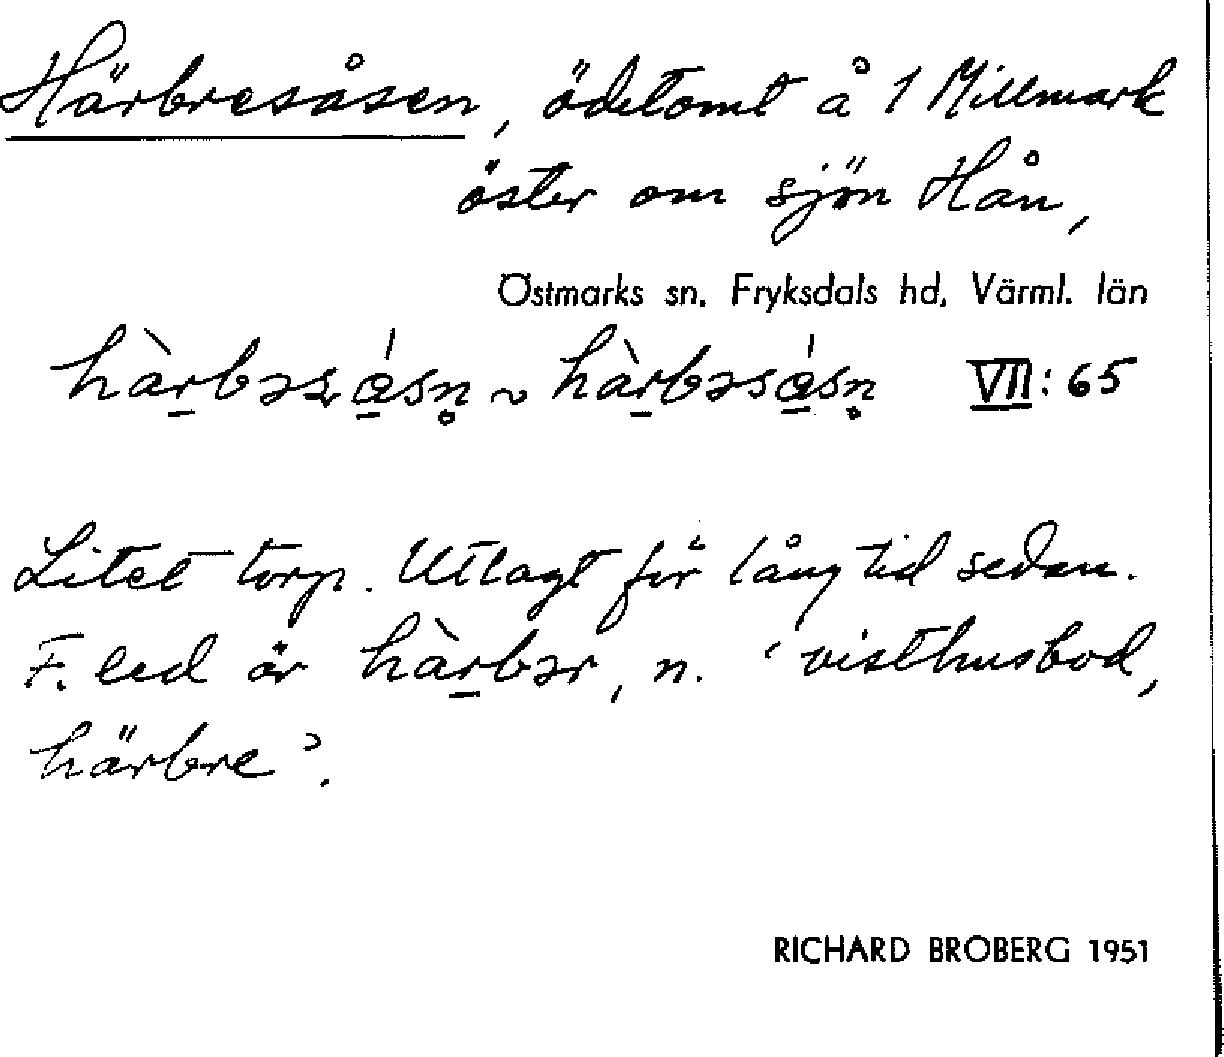 Härbresåsen, ödetomt å 1 Millmark
öster om sjön Hån,
Östmarks sn. Fryksdals hd, Värml. län
hà̠rbəsɑ̠́sn̥ ~ hà̠rbəsɑ̠́sn̥ VII: 65
Litet torp. Utlagt för lång tid sedan.
F. led är hà̠rbər, n. ‘visthusbod,
härbre’.
RICHARD BROBERG 1951